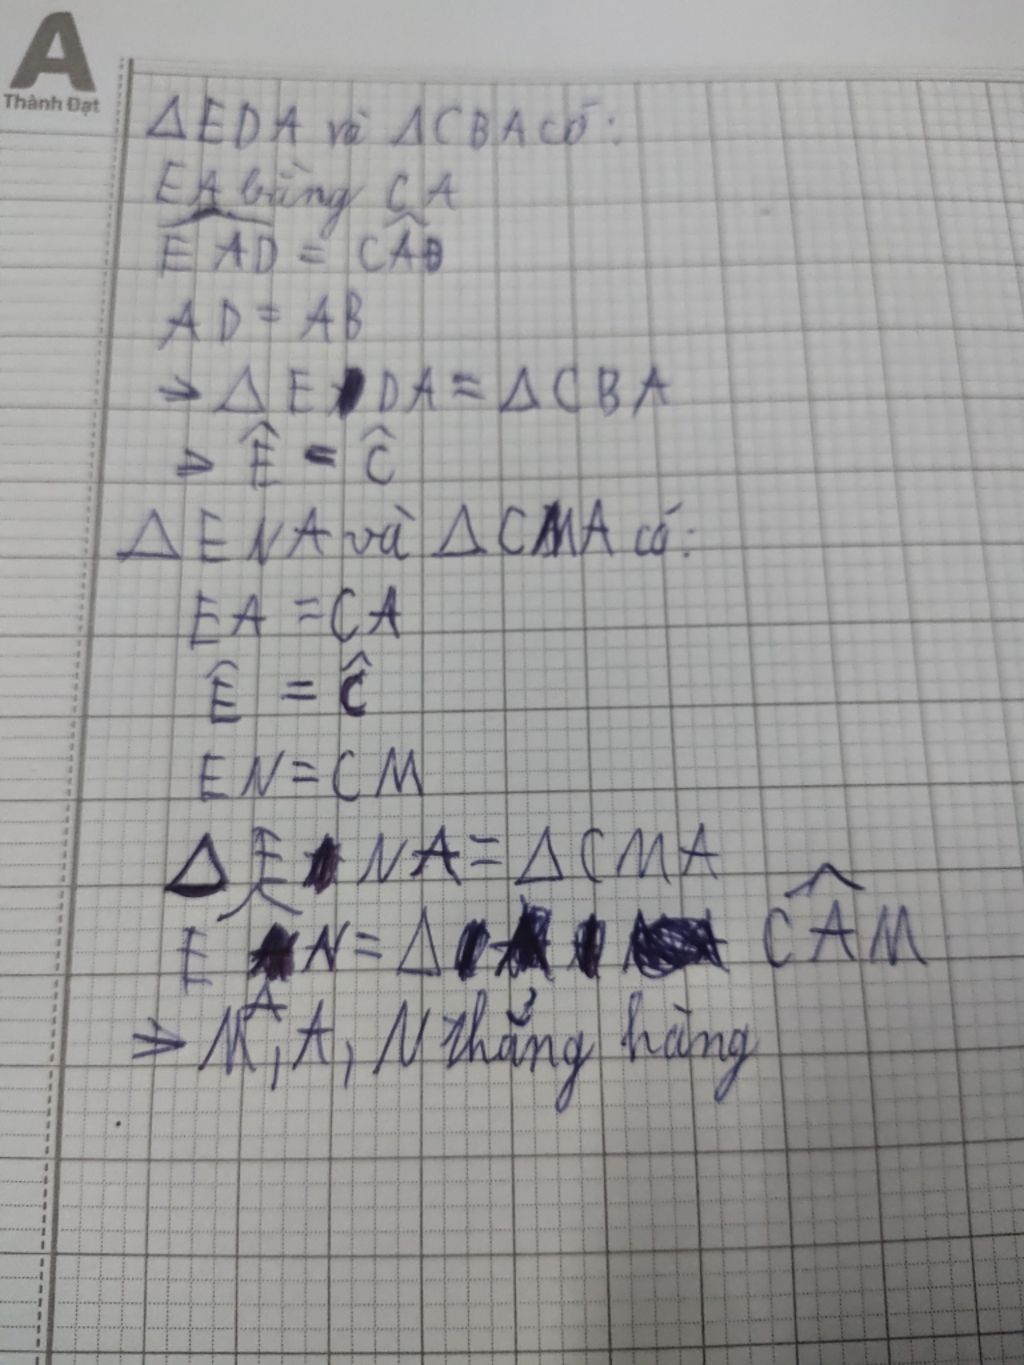 A
Thành Đạt
ΔEDA và ΔCBA có:
EA bằng CA
\widehat{EAD} = C\widehat{A}B
AD = AB
⇒ ΔEDA = ΔCBA
⇒ Ê = Ĉ
ΔENA và ΔCMA có:
EA = CA
Ê = Ĉ
EN = CM
ΔENA = ΔCMA
E\widehat{A}N = Δ C\widehat{A}M
⇒ M, A, N thẳng hàng